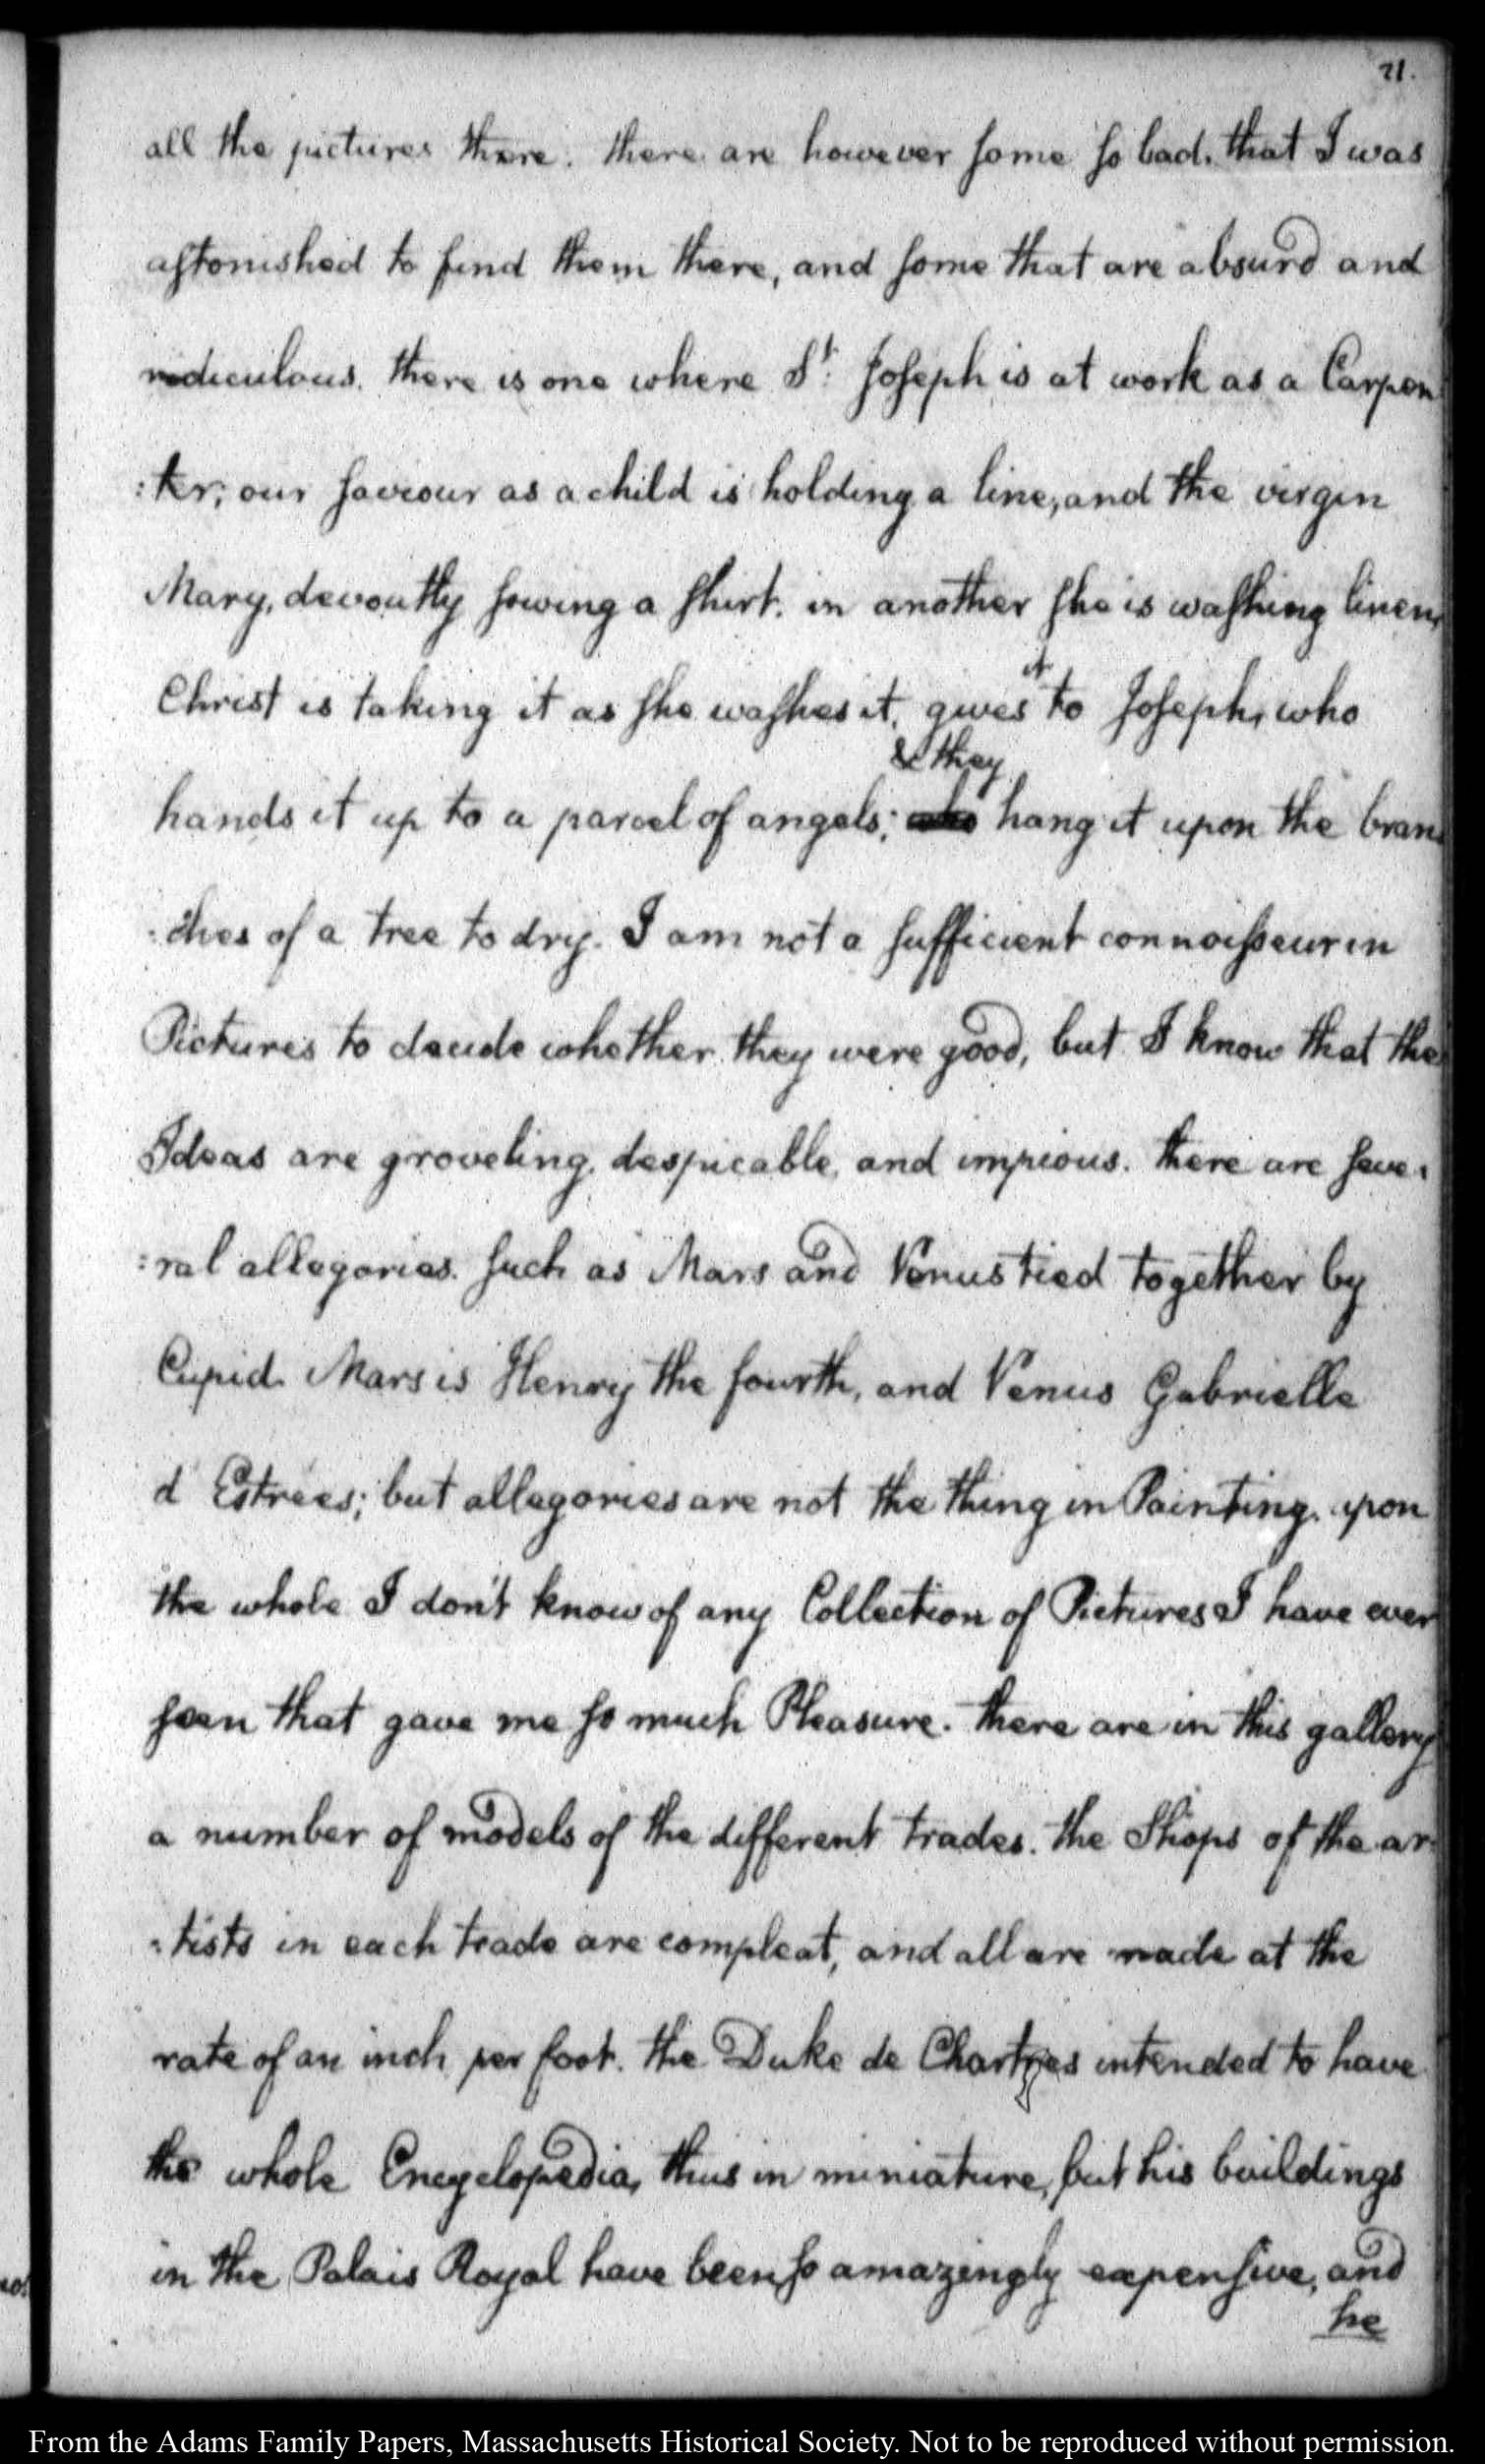 21.
all the pictures there. there are however some so bad, that I was
astonished to find them there, and some that are absurd and
ridiculous. there is one where St: Joseph is at work as a Carpen
:ter; our saviour as a child is holding a line, and the virgin
Mary, devoutly sowing a shirt. in another she is washing linen,
Christ is taking it as she washes it, gives it to Joseph, who
& they
hands it up to a parcel of angels; who hang it upon the bran
:ches of a tree to dry. I am not a sufficient connoisseur in
Pictures to decide whether they were good, but I know that the
Ideas are groveling, despicable, and impious. there are seve:
:ral allegories. such as Mars and Venus tied together by
Cupid. Mars is Henry the fourth, and Venus Gabrielle
d'Estrees; but allegories are not the thing in Painting. upon
the whole I don't know of any Collection of Pictures I have ever
seen that gave me so much Pleasure. there are in this gallery
a number of models of the different trades. the Shops of the ar:
:tists in each trade are compleat, and all are made at the
rate of an inch per foot. the Duke de Chartres intended to have
the whole Encyclopedia, thus in miniature, but his buildings
in the Palais Royal have been so amazingly expensive, and
he
From the Adams Family Papers, Massachusetts Historical Society. Not to be reproduced without permission.